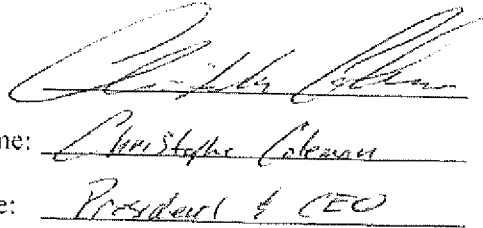 Christopher Coleman
me: Christopher Coleman
e: President & CEO